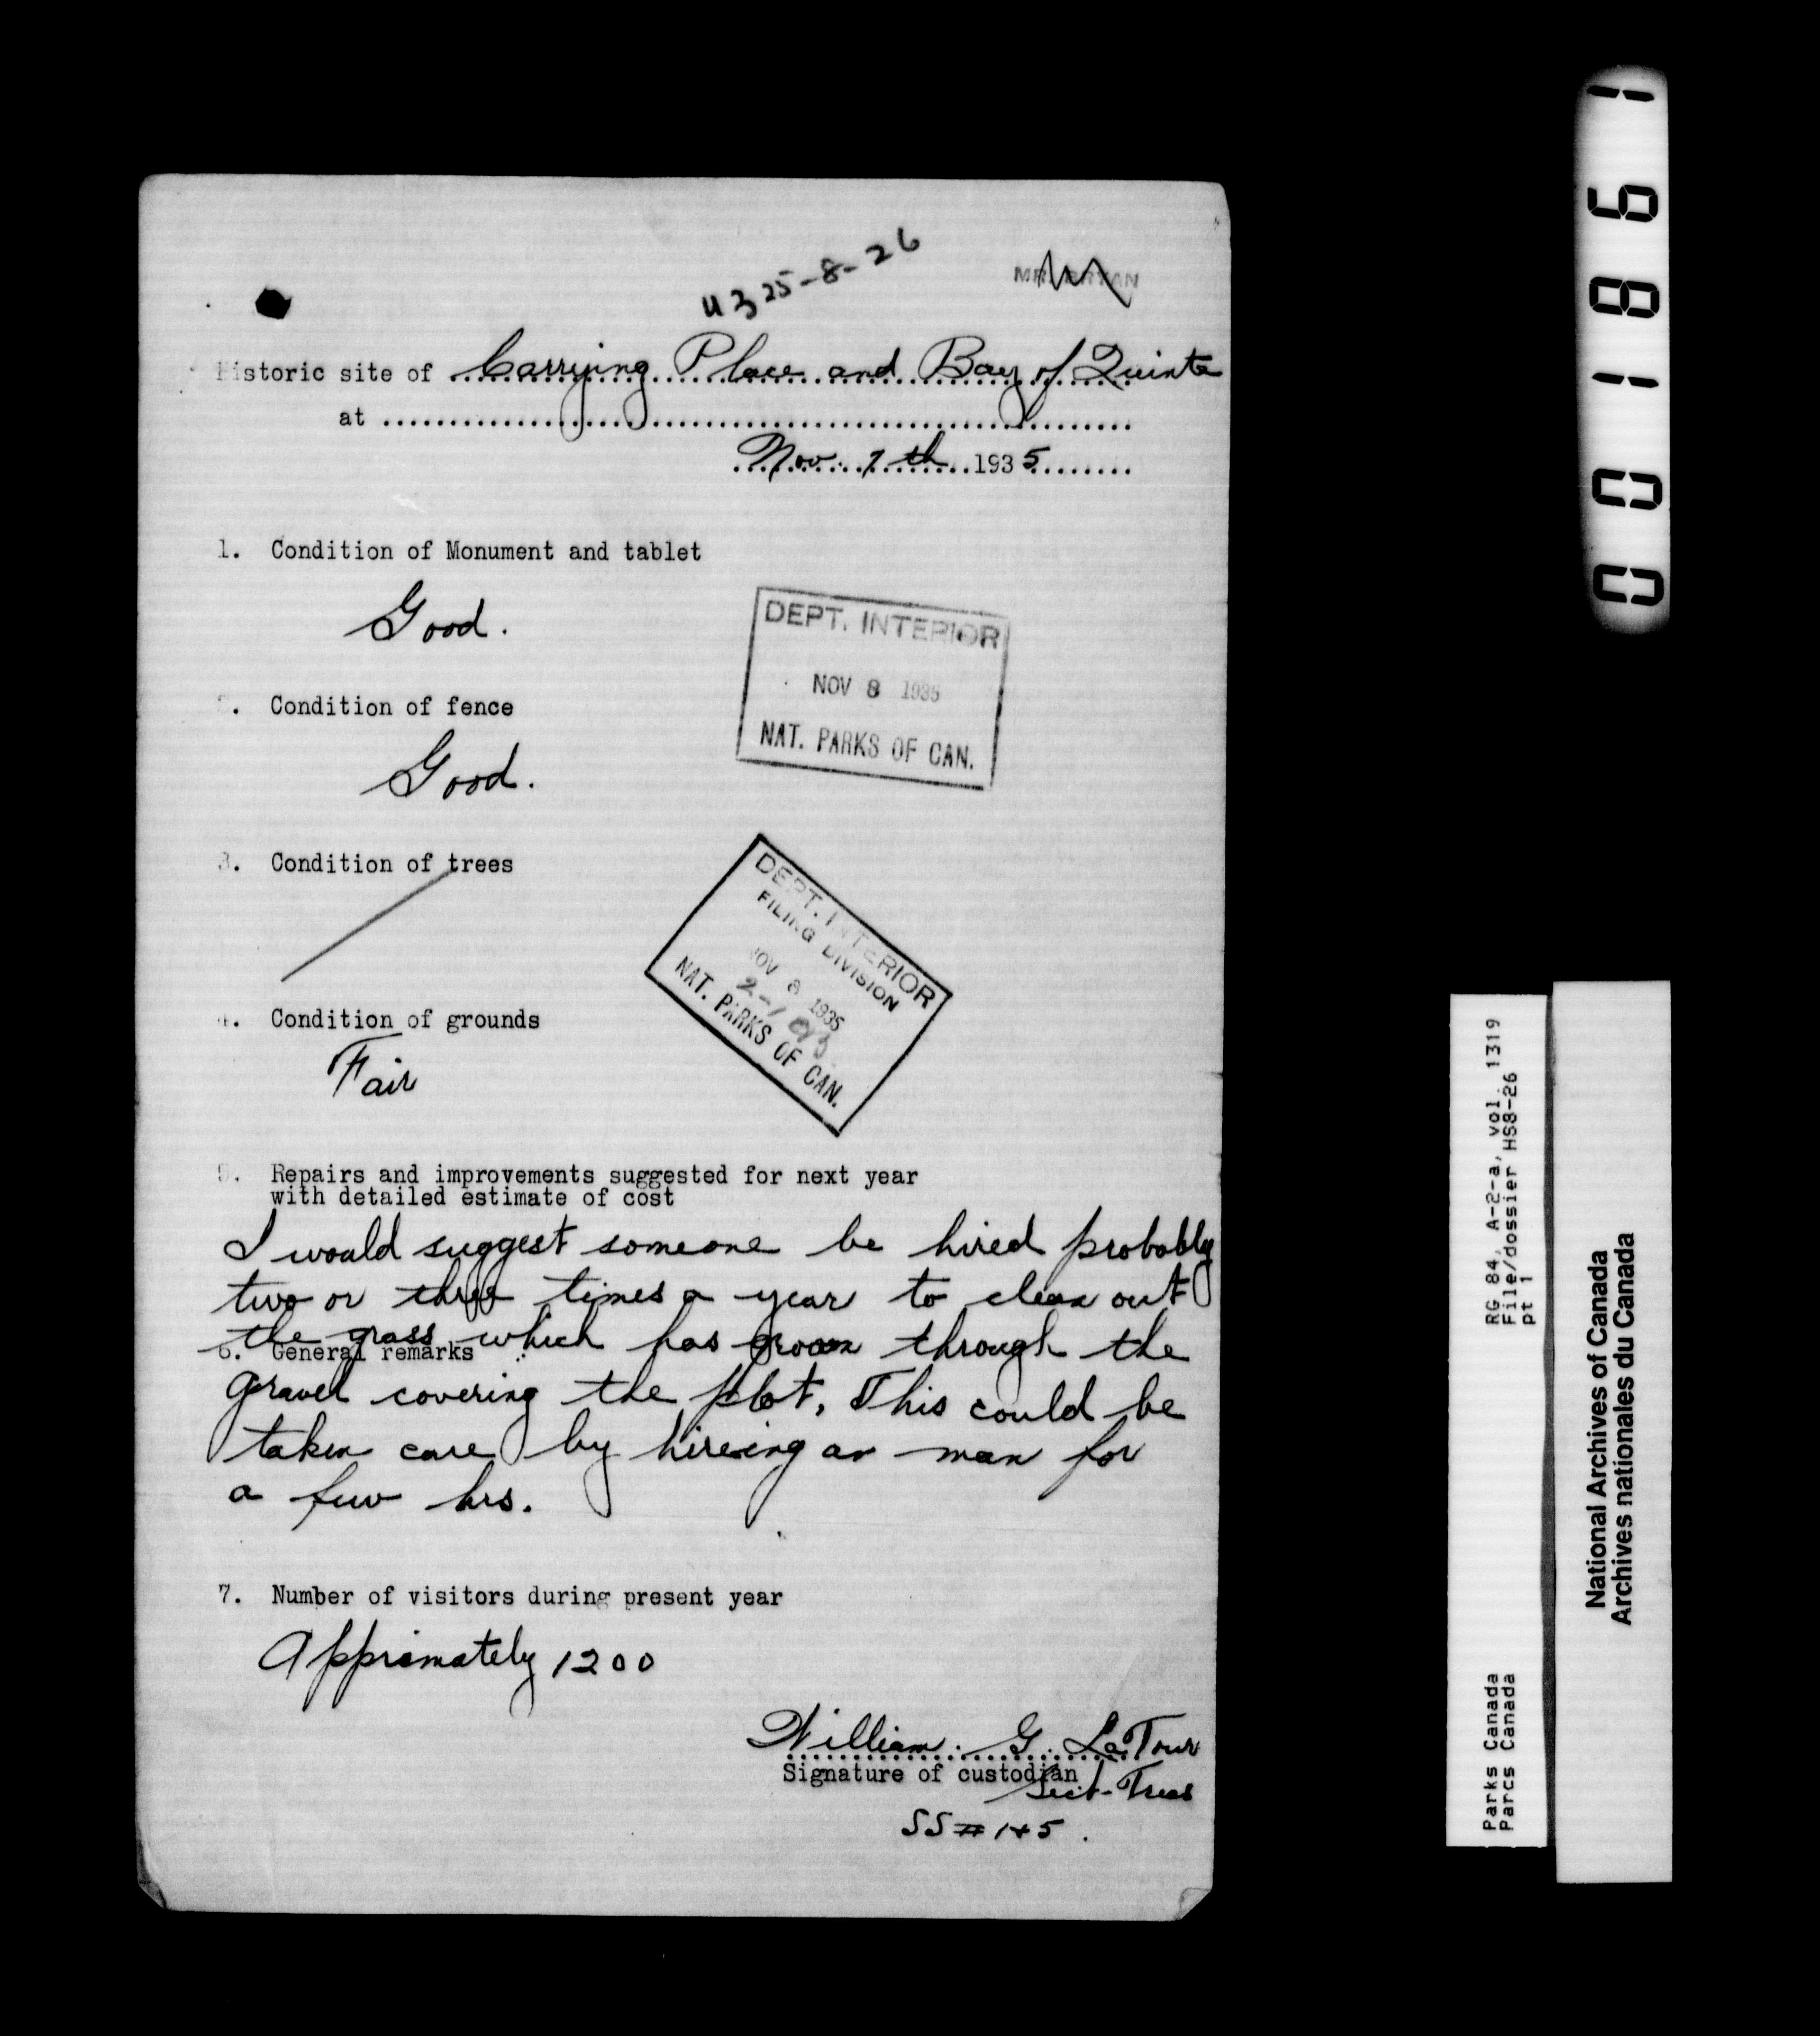 U325-8-26
MR. BRYAN
Historic site of Carrying Place and Bay of Quinte
at
Nov. 7th 1935
1. Condition of Monument and tablet
Good.
DEPT. INTERIOR
NOV 8 1935
NAT. PARKS OF CAN.
2. Condition of fence
Good.
3. Condition of trees
DEPT. INTERIOR
FILING DIVISION
NOV 8 1935
NAT. PARKS OF CAN.
4. Condition of grounds
Fair
5. Repairs and improvements suggested for next year
with detailed estimate of cost
I would suggest someone be hired probably
two or three times a year to clean out
the grass which has grown through the
6. General remarks
gravel covering the plot, This could be
taken care by hireing an man for
a few hrs.
7. Number of visitors during present year
Apprimately 1200
William G. LaTour
Signature of custodian
Sect-Treas
SS # 1+5.
001861
RG 84, A-2-a, vol. 1319
File/dossier HS8-26
pt 1
Parks Canada
Parcs Canada
National Archives of Canada
Archives nationales du Canada